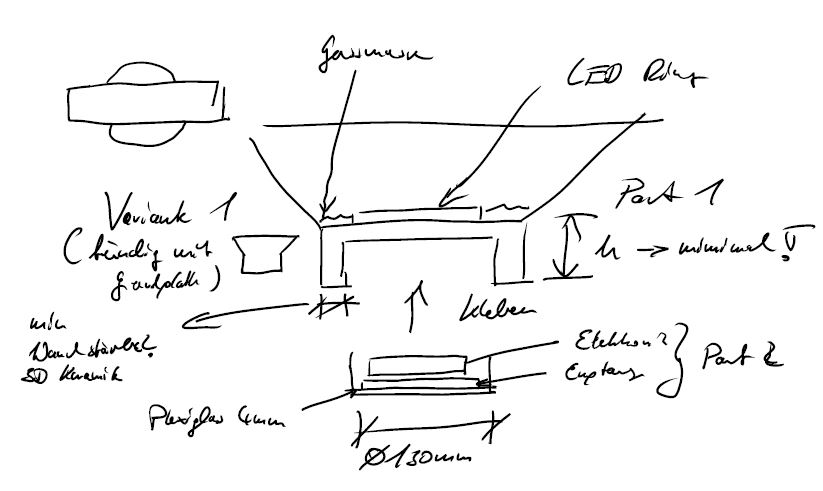 LED Ring
Variante 1
(bündig mit
Grundplatte)
Part 1
h → minimal!
kleben
min
Wandstärke?
3D Keramik
Elektronik
Empfang
Part 2
Plexiglas 4mm
Ø130mm